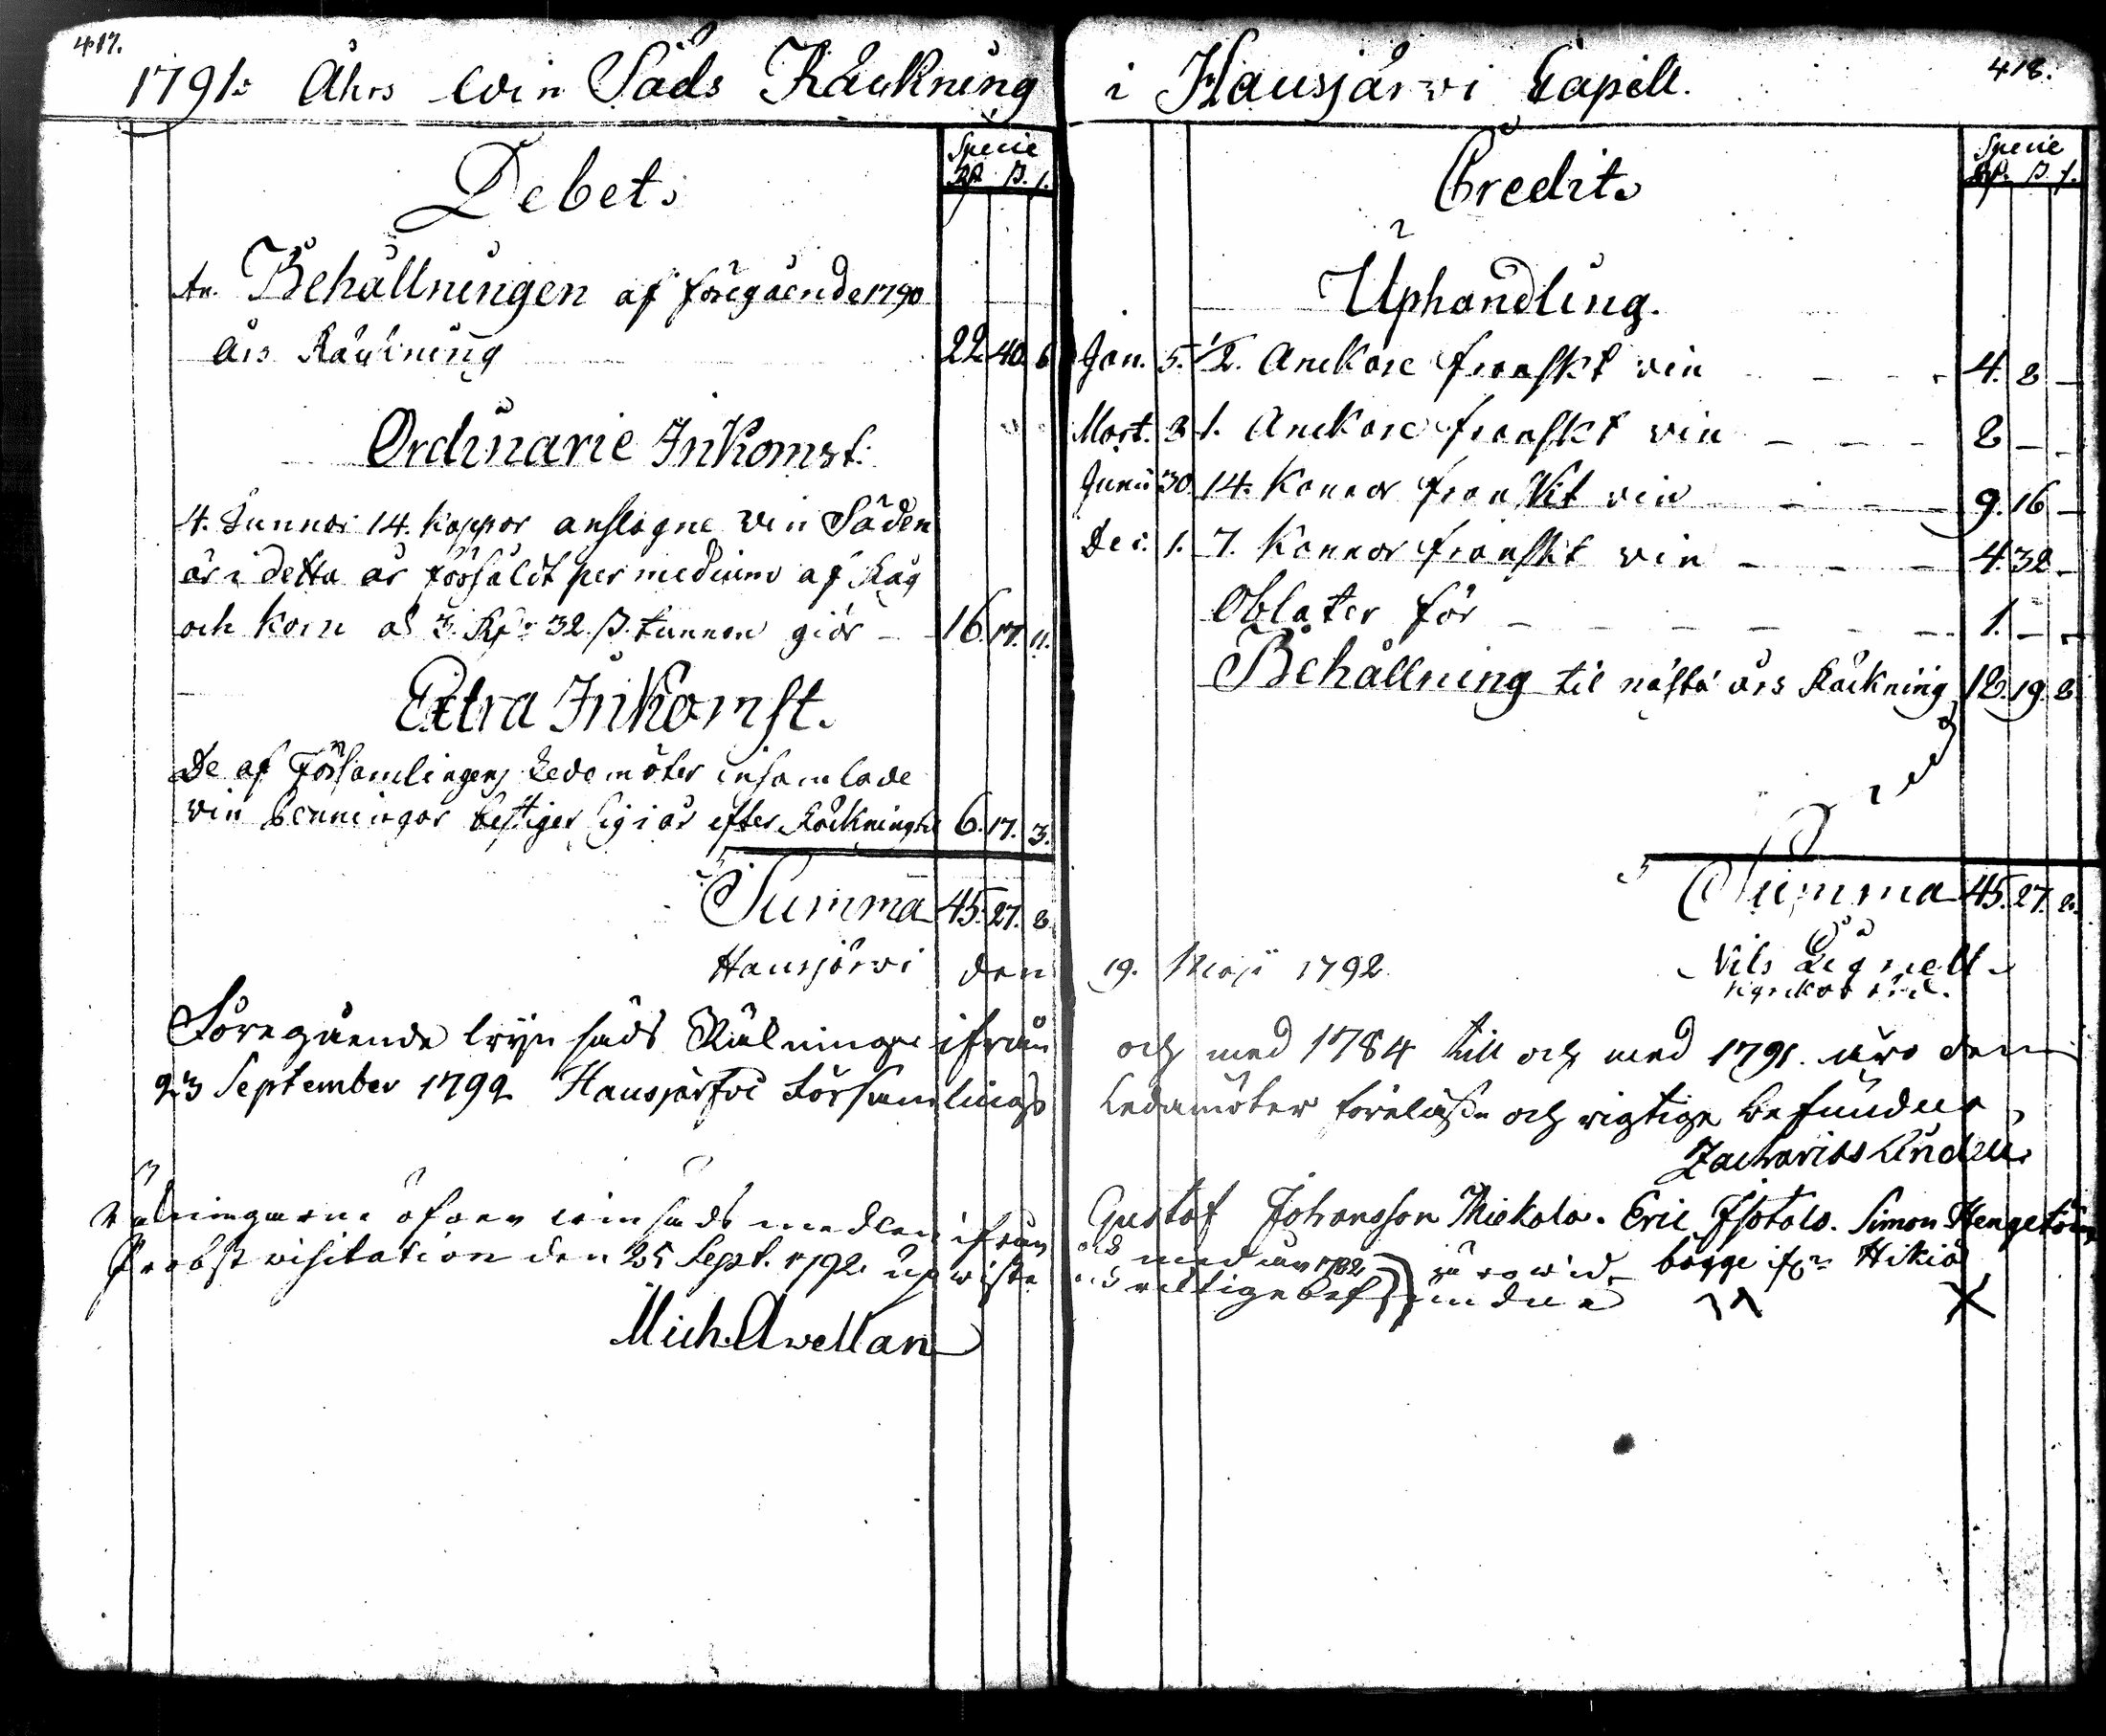 417.
1791: Åhrs Win Säds Räckning
Debet.
Specie
Rd. ß. r.
An. Behållningen af föregående 1790
års Räckning 22. 40. 6
Ordinarie Inkomst.
4. Tunnor 14. Kappor anslagne Win Säden
är i detta år försåldt per medium af Råg
och Korn a 3. Rd. 32 ß. tunnan giör – 16. 17. 11.
Extra Inkomst.
De af Församlingens Ledamöter insamlade
vin penningar bestiger sig i år efter Räckning til 6. 17. 3.
Summa 45. 27. 8.
Hausjärvi den
Föregående wijn säds Räkningar ifrån
23 September 1792 Hausjärfvi Församlings
Räkningarne öfwer winsäds medlen ifrån
Probst visitation den 25 Sept. 1792 upwiste
Mich. Avellan
418.
i Hausjärvi Capell.
Credit.
Specie
Rd. ß. r.
Uphandling.
Jan. 5. 1/2. Anckare franskt vin – – – 4. 8 –
Mart. 8 1. Anckare franskt vin – – – 8 – –
Junii 30 14. Kannor franskt vin – – 9. 16 –
Dec. 1. 7. Kannor franskt vin – – – 4. 32 –
Oblater för – – – – – – 1. – –
Behållning til nästa års Räckning 18. 19. 8
Summa 45. 27. 8.
19. Maji 1792. Nils Lignell
och med 1784 till och med 1791 äro den
Ledamöter föreläste och rigtige befundne,
Zacharias
Gustaf Johansson Mickola. Eric Isotalo. Simon
och med 1782 äro wid bägge ifrån Hikiä
och rättige befundne X